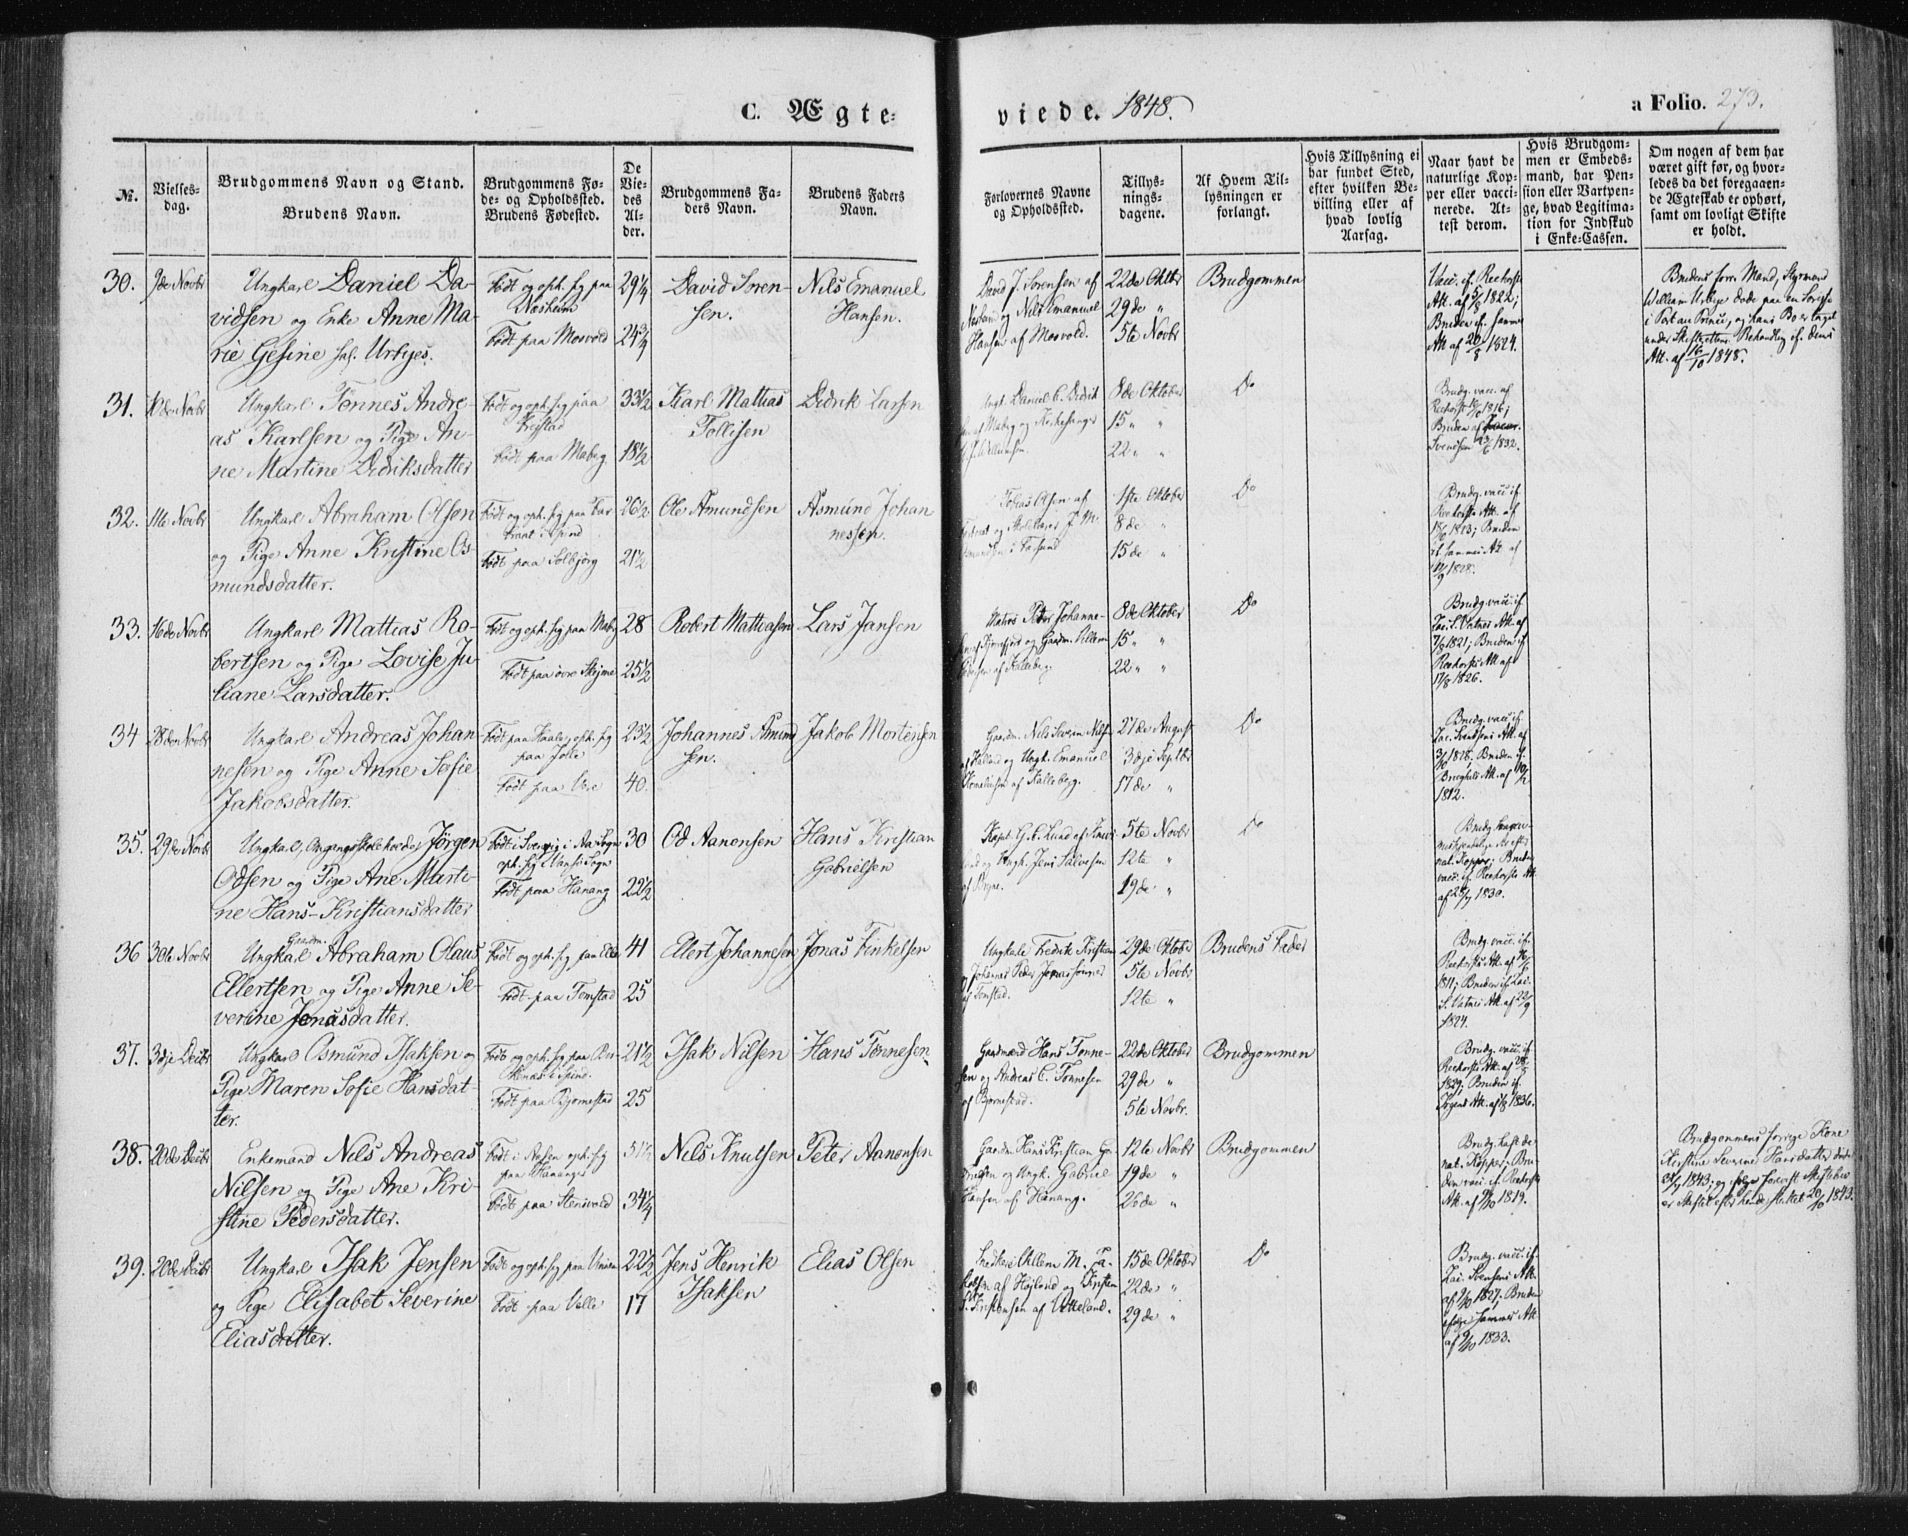 C. Ægte-
viede. 1848.
a Folio. 273.
№.
Vielses-
dag.
Brudgommens Navn og Stand.
Brudens Navn.
Brudgommens Fø-
de- og Opholdssted.
Brudens Fødested.
De
Vie-
des
Al-
der.
Brudgommens Fa-
ders Navn.
Brudens Faders
Navn.
Forlovernes Navne
og Opholdssted.
Tillys-
nings-
dagene.
Af Hvem Til-
lysningen er
forlangt.
Hvis Tillysning ei
har fundet Sted,
efter hvilken Be-
villing eller af
hvad lovlig
Aarsag.
Naar havt de
naturlige Kop-
per eller vacci-
nerede. At-
test derom.
Hvis Brudgom-
men er Embeds-
mand, har Pen-
sion eller Vartpen-
ge, hvad Legitima-
tion for Indskud
i Enke-Cassen.
Om nogen af dem har
været gift før, og hvor-
ledes da det foregaaen-
de Ægteskab er ophørt,
samt om lovligt Skifte
er holdt.
30.
9de Novbr
Ungkarl Daniel Da-
vidsen og Enke Anne Ma-
rie Gesine sal. Urbyes.
Født og oph. sig paa
Næsheim
Født paa Mosvold
29¼
24¾
David Soren-
sen.
Nils Emanuel
Hansen.
David J. Sorensen af
og Nils Emanuel
Hansen af Mosvold.
22de Oktbr
29de "
5te Novbr
Brudgommen
Vacc. if. Reehorsts
Att. af 5/8 1822;
Bruden if. samme
Att af 20/8 1824.
Brudens forr. Mand, Styrmand
William Urbye døde paa en Søreise
i Port au Prince, og hans Bo er taget
under Skifterettens Behandling if. dens
Att. af 16/10 1848.
31.
10de Novbr
Ungkarl Tønnes Andre-
as Karlsen og Pige An-
ne Martine Didriksdatter
Født og oph. sig paa
Født paa Maberg
33½
18½
Karl Mathias
Tollisen
Didrik Larsen
Ungk. Daniel C. Didrik
sen af Maberg og Kirkesanger
8de Oktober
15 " "
22 " "
Do
Brudg. vacc. af
Reehorst 1816;
Bruden af
Svendsen 1832.
32.
11te Novbr
Ungkarl Abraham Olsen
og Pige Anne Kristine Os-
mundsdatter.
Født og oph. sig paa
i Spind
Født paa Solbjørg
26½
21½
Ole Asmundsen
Asmund Johan
nessen.
Tobias Olsen af
1ste Oktober
8de "
15de "
Do
Brudg. vacc if.
Reehorsts Att. af
1823; Bruden
if. sammes Att af
1828.
33.
16de Novbr
Ungkarl Mattias Ro-
bertsen og Pige Lovise Ju-
liane Larsdatter.
Født og oph. sig paa Maberg
Født paa øvre Skejme
28
25½
Robert Mathiasen
Lars Jansen
Peter Johanne-
sen og Gaardm. Villem
af Kalleberg.
8de Oktober
15 " "
22 " "
Do
Brudg. vacc if.
Zac. L. Vatnes Att. af
1821; Bruden if.
Reehorsts Att. af
17/8 1826.
34
28de Novbr
Ungkarl Andreas Johan
nesen og Pige Anne Sofie
Jakobsdatter.
Født paa oph. sig
paa Jolle
Født paa Vere
23½
40.
Johannes Asmund
sen.
Jakob Mortensen
Gaardm. Nils Severin Nils-
og Ungk. Emanuel
Kornelinsen af Kalleberg.
27de August
3dje Septbr
17de "
Do
Brudg. vacc if.
Zac. Svendsens Att. af
Bruden if.
1812.
35.
29de Novbr
Ungkarl, Omgangsskoleholder Jørgen
Odsen og Pige Ane Marti-
ne Hans-Kristiansdatter
oph. sig i Vanse Sogn
Født paa Hanang
30
22½
Od Aanensen
Hans Kristian
Gabrielsen
Kapt. G. C. Lund af
og Ungk. Jens Salvesen
af
5te Novbr
12te "
19de "
Do
nat. Kopper; Bruden
vacc. if. Reehorsts Att.
af 1830.
36
30te Novbr
Gaardm.
Ungkarl Abraham Olaus
Ellertsen og Pige Anne Se-
verine Jonasdatter.
Født og oph. sig paa Elle
Født paa Tomstad
41
25
Ellert Johannesen
Jonas Finkelsen
Ungkarle Fredrik Kristian
og Johannes Peder Jonassønner
af Tomstad.
29de Oktober
5te Novbr
12te "
Brudens Fader
Brudg. vacc. if.
Reehorsts Att. af
1811; Bruden if. Zac.
L. Vatnes Att. af 22/9
1824.
37.
3dje Decbr
Ungkarl Osmund Isaksen og
Pige Maren Sofie Hansdat-
ter.
Født og oph. sig paa
i Spind.
Født paa Bjørnestad
21½
25
Isak Nilsen
Hans Tønnesen
Gaardmænd Hans Tønne-
sen og Andreas C. Tønnesen
af Bjørnestad.
22de Oktober
29de "
5te Novbr.
Brudgommen
Brudg. vacc. if.
Reehorsts Att. af
1829; Bruden if.
Att. af 1836.
38.
20de Decbr
Enkemand Nils Andreas
Nilsen og Pige Ane Kri-
stine Pedersdatter.
Født i oph. sig
paa Hananger
Født paa Stensvold
51½
34¼
Nils Knutsen
Peter Aanensen
Gaardm. Hans Kristian Ga-
brielsen og Ungk. Gabriel
Hansen af Hanang.
12te Novbr
19de "
26de "
Brudgommen
Brudg. haft de
nat. Kopper; Bru-
den vacc. if. Reehorsts
Att. af 1819.
Brudgommens forrige Kone
Kirstine Severine Hansdatter døde
1843; og ifølge Sorenskr. Skiftebrev
er Skiftet efter hende sluttet 20/10 1843.
39.
20de Decbr
Ungkarl Isak Jensen
og Pige Elisabet Severine
Eliasdatter.
Født og oph. sig paa
Født paa Velle
22½
17
Jens Henrik
Isaksen
Elias Olsen
Snedker Villem M. Ja-
kobsen af Højland og Kristen
S. Kristensen af Vatteland.
15de Oktober
22de "
29de "
Do
Brudg. vacc. if.
Zac. Svensens Att.
af 1827; Bruden
ifølge sammes Att
af 9/10 1833.